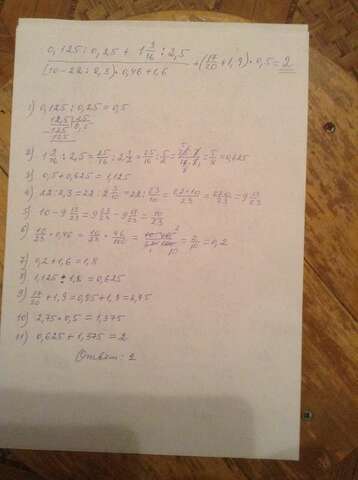 0,125 : 0,25 + 1 9/16 : 2,5
(10 - 22 : 2,3) · 0,46 + 1,6 + (17/20 + 1,9) · 0,5 = 2
1) 0,125 : 0,25 = 0,5
12,5 | 25
125 | 0,5
125
2) 1 9/16 : 2,5 = 25/16 : 2 1/2 = 25/16 : 5/2 = 25·2/16·5 = 5/8 = 0,625
3) 0,5 + 0,625 = 1,125
4) 22 : 2,3 = 22 : 2 3/10 = 22 : 23/10 = 22·10/23 = 220/23 = 9 13/23
5) 10 - 9 13/23 = 9 23/23 - 9 13/23 = 10/23
6) 10/23 · 0,46 = 10/23 · 46/100 = 2/10 = 0,2
7) 0,2 + 1,6 = 1,8
8) 1,125 : 1,8 = 0,625
9) 17/20 + 1,9 = 0,85 + 1,9 = 2,75
10) 2,75 · 0,5 = 1,375
11) 0,625 + 1,375 = 2
Ответ: 2